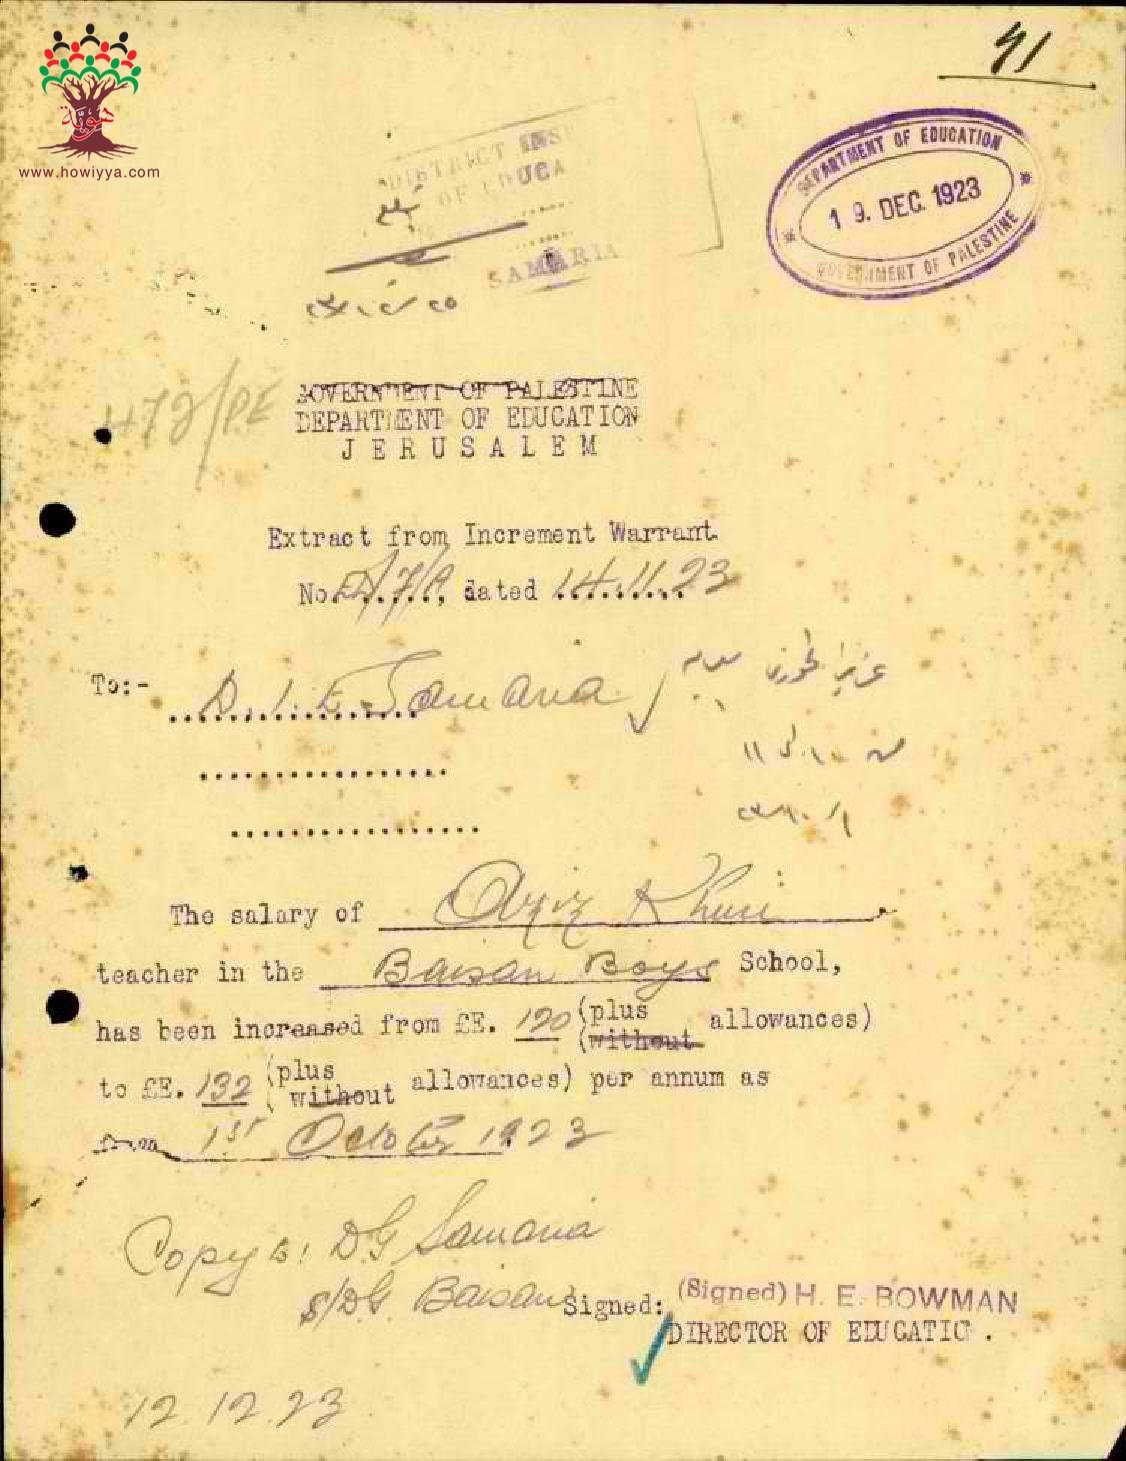 هويّة
www.howiyya.com
41
DISTRICT INS
OF EDUCA
SAMARIA
DEPARTMENT OF EDUCATION
19. DEC. 1923
GOVERNMENT OF PALESTINE
472/PE
GOVERNMENT OF PALESTINE
DEPARTMENT OF EDUCATION
JERUSALEM
Extract from Increment Warrant
No. , dated 14.11.23
To:- D.I.E. Samaria
عزيز الخوري
The salary of Aziz Khuri
teacher in the Baisan Boys School,
has been increased from £E. 120 (plus
(without allowances)
to £E. 132 (plus
( without allowances) per annum as
from 1st October 1923
Copy to: D.G Samaria
S/D.G. Baisan
Signed: (Signed) H. E. BOWMAN
DIRECTOR OF EDUCATIO .
12.12.23